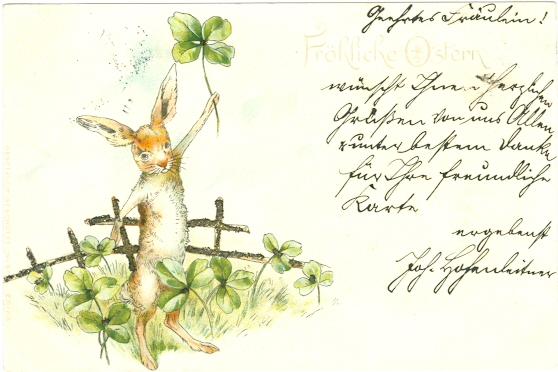 Geehrtes Fräulein!
Fröhliche Ostern
wünscht Ihnen Herzlichen
Grüßen von uns Allen
runter bestem Danke
für Ihre freundliche
Karte
ergebenst
Joh. Hofenleitner